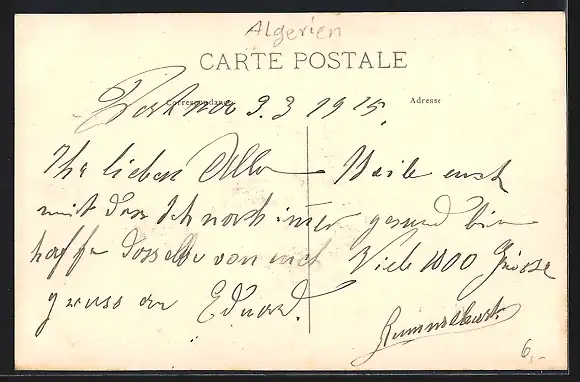 Algerien
CARTE POSTALE
Correspondance
Adresse
9.3 1915.
Ihr lieben Alle Theile euch
mit das Ich noch immer gesund bin
hoffe dasselbe von euch Viele 1000 Grüsse
gruss an Eduard.
6,-